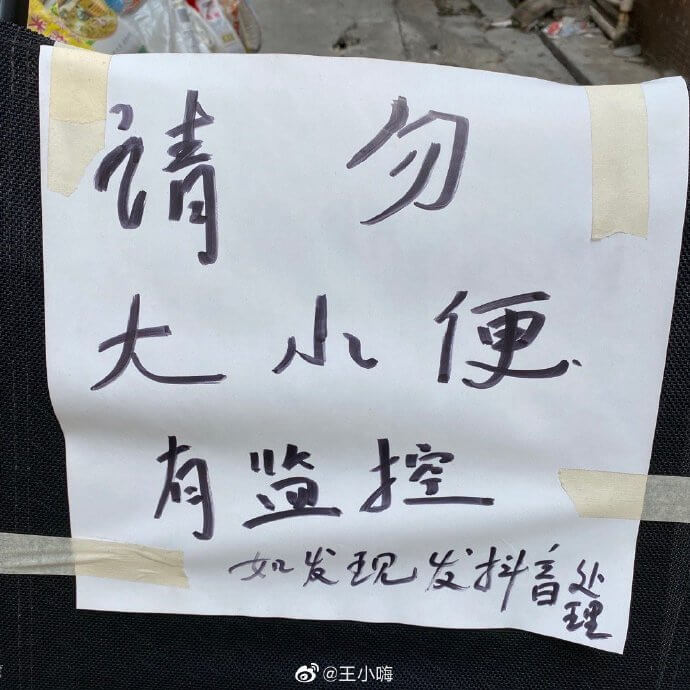 请勿
大小便
有监控
如发现发抖音处理
@王小嗨